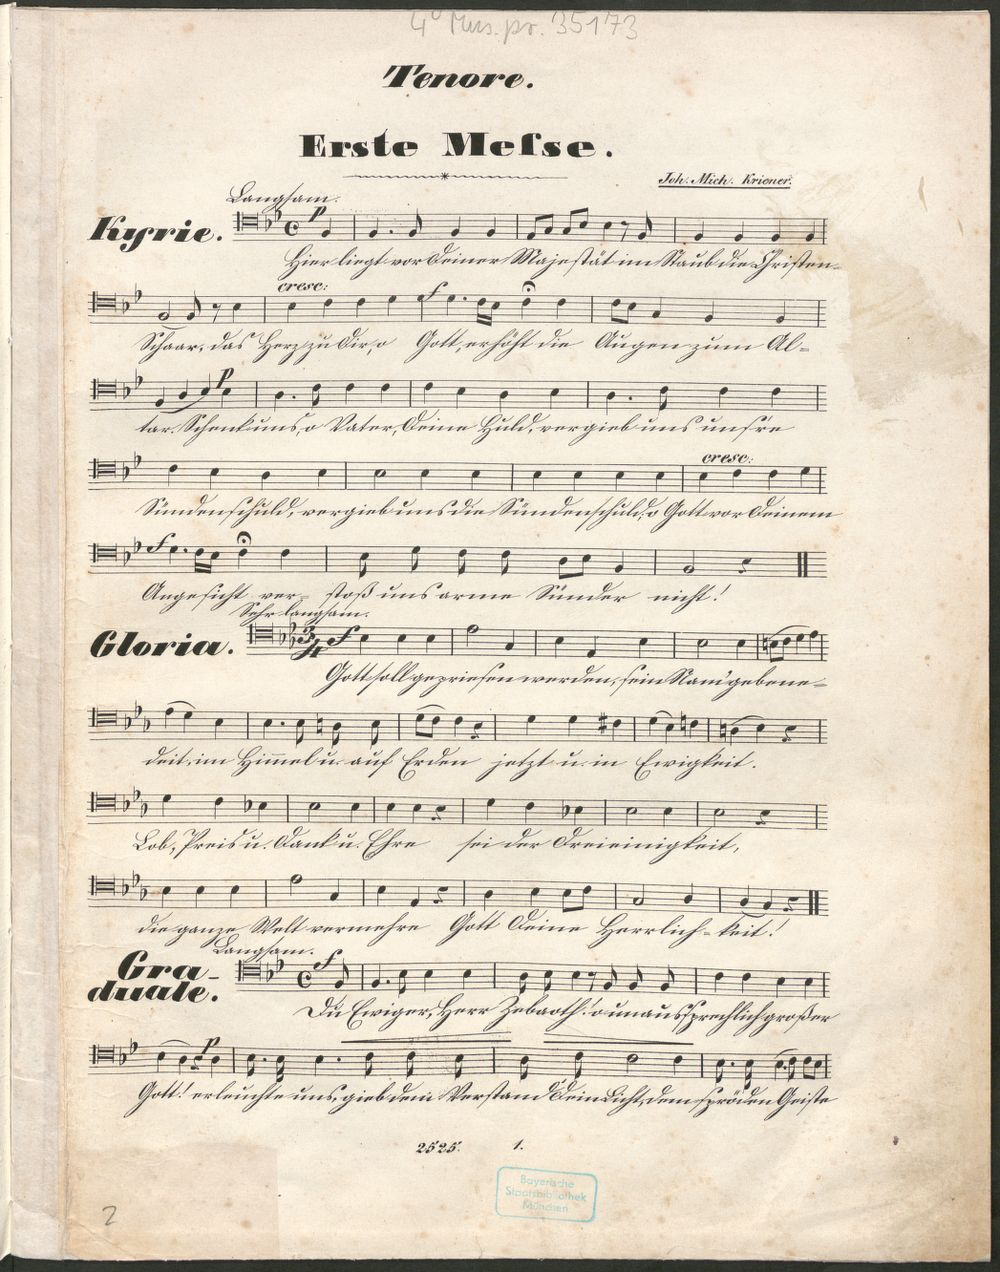 4° Mus. pr. 35173
Tenore.
Erste Meſse.
Joh. Mich. Kriener.
Langsam.
Kyrie.
p
Hier liegt vor Deiner Majestät im Staub die Christen-
cresc: f
Schaar, das Herz zu Dir, o Gott, erhöht die Augen zum Al-
p
tar. Schenk uns, o Vater, Deine Huld, vergieb uns unsre
cresc:
Sündenschuld, vergieb uns die Sündenschuld, o Gott vor Deinem
f
Angesicht ver- stoß uns arme Sünder nicht!
Sehr langsam.
Gloria.
3/4 f
Gott soll gepriesen werden, sein Nam' gebene-
deit, im Himmel u. auf Erden jetzt u. in Ewigkeit.
Lob, Preis u. Dank u. Ehre sei der Dreieinigkeit,
die ganze Welt vermehre Gott Deine Herrlich- keit!
Langsam.
Gra-
duale.
f
Du Ewiger, Herr Zebaoth! o unaussprechlich großer
p
Gott! erleuchte uns, gieb dem Verstand Dein Licht, dem spröden Geiste
2525. 1.
Bayerische
Staatsbibliothek
München
2